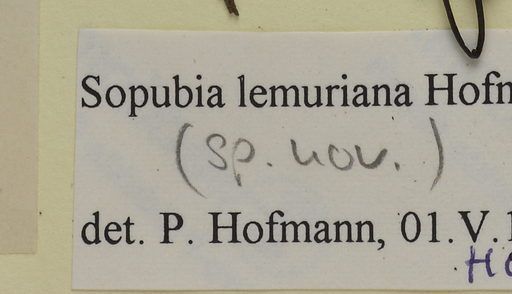 Sopubia lemuriana Hofm
(sp. nov.)
det. P. Hofmann, 01.V.1